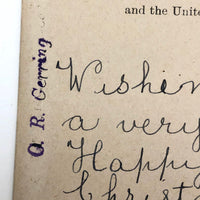 and the Unite
O. R. Gerring
Wishin
a very
Happi
Christ